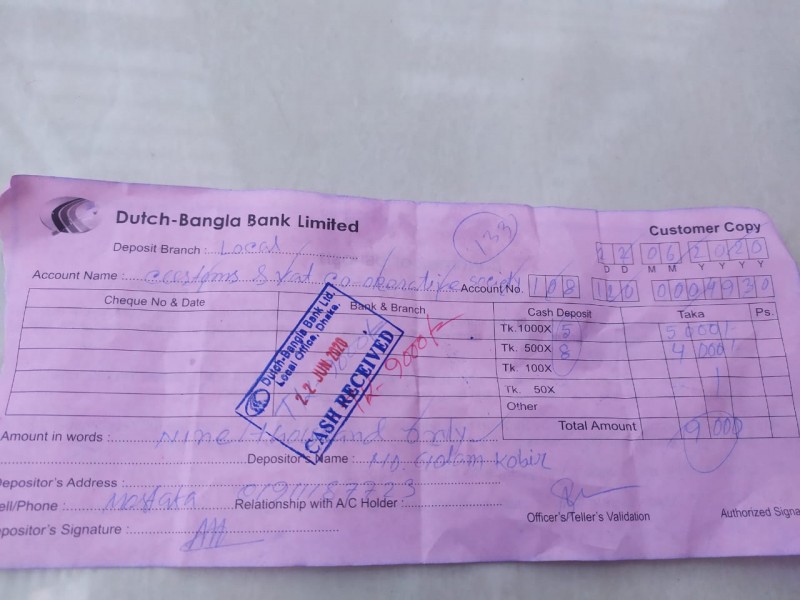 Dutch-Bangla Bank Limited
Customer Copy
133
Deposit Branch : Local
22 06 2020
D D M M Y Y Y Y
Account Name : Customs & Vat Co-oparative Society
Account No. 108 110 0004930
Cheque No & Date Bank & Branch Cash Deposit Taka Ps.
Tk. 1000X 5 5000/-
Tk. 500X 8 4000/-
Tk. 100X
Tk. 50X
Other
Total Amount 9000
Dutch-Bangla Bank Ltd.
Local Office, Dhaka.
22 JUN 2020
CASH RECEIVED
9000/-
Amount in words : Nine thousand only
Depositor's Name : Md. Golam Kobir
Depositor's Address :
ell/Phone : Mostafa 01911187723 Relationship with A/C Holder :
positor's Signature :
Officer's/Teller's Validation
Authorized Signa